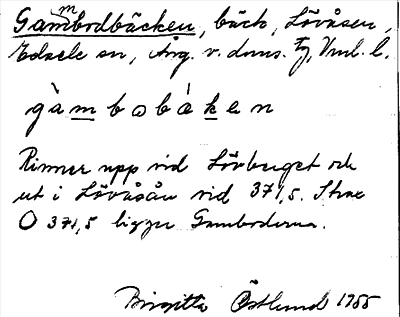 Gammbodbäcken, bäck, Lövåsen,
Edsele sn, Ång. v. dms. tg, Vml. l.
gàmbobáken
Rinner upp vid Lövberget och
ut i Lövåsån vid 371,5. Strax
O 371,5 ligger Gambodarna.
Birgitta Östlund 1955